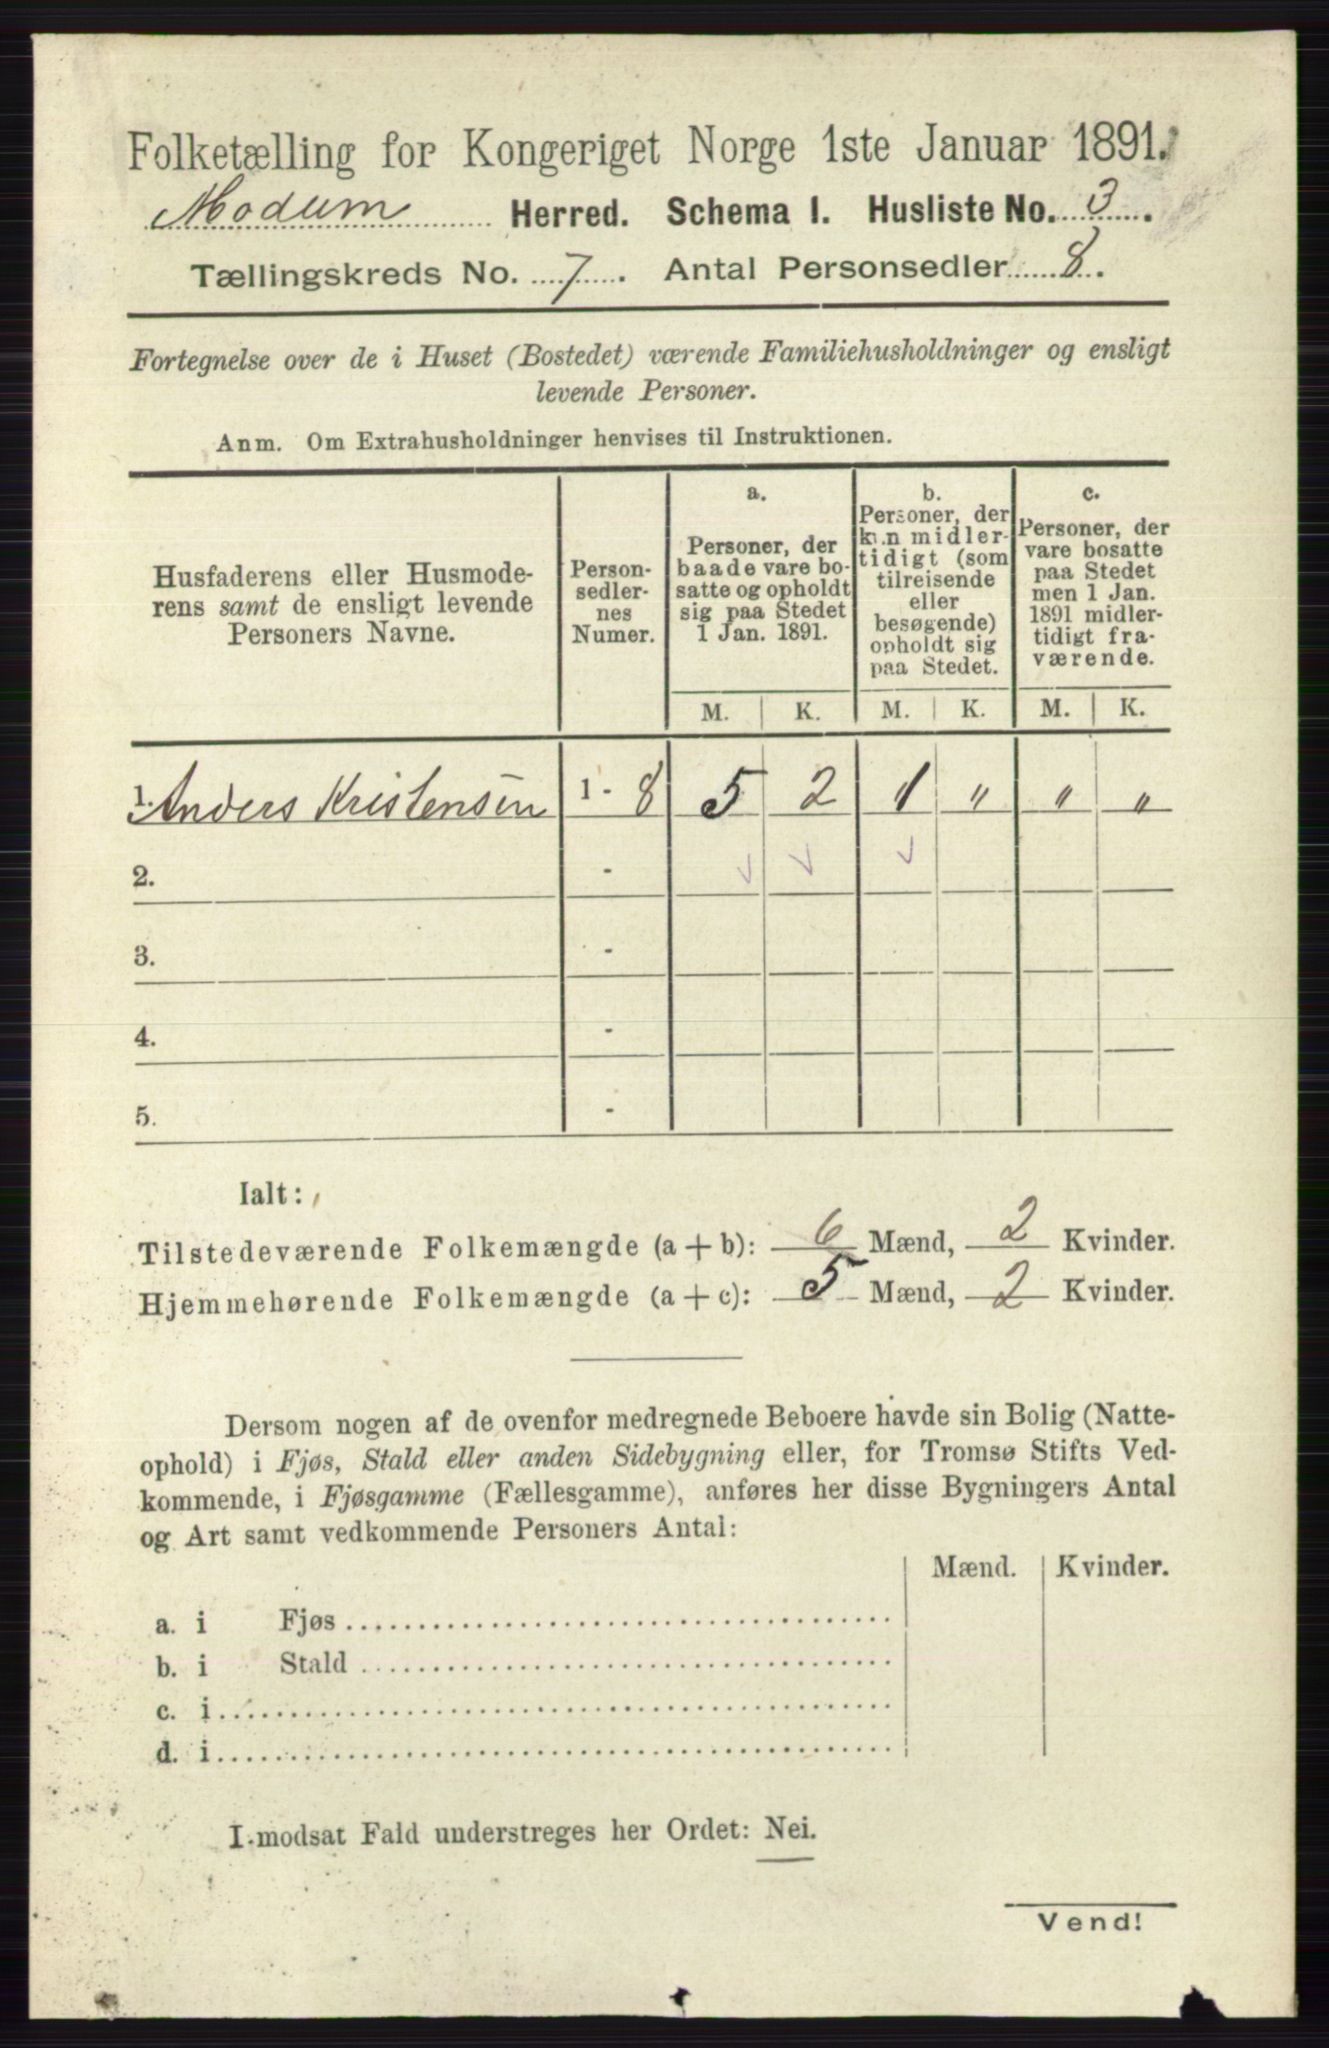 Folketælling for Kongeriget Norge 1ste Januar 1891.
Modum Herred. Schema I. Husliste No. 3.
Tællingskreds No. 7. Antal Personsedler 8.
Fortegnelse over de i Huset (Bostedet) værende Familiehusholdninger og ensligt
levende Personer.
Anm. Om Extrahusholdninger henvises til Instruktionen.
Husfaderens eller Husmode-
rens samt de ensligt levende
Personers Navne.
Person-
sedler-
nes
Numer.
a.
Personer, der
baade vare bo-
satte og opholdt
sig paa Stedet
1 Jan. 1891.
b.
Personer, der
kun midler-
tidigt (som
tilreisende
eller
besøgende)
opholdt sig
paa Stedet.
c.
Personer, der
vare bosatte
paa Stedet
men 1 Jan.
1891 midler-
tidigt fra-
værende.
M. K. M. K. M. K.
1. Anders Kristensen 1 - 8 5 2 1 " " "
2. -
3. -
4. -
5. -
Ialt:
Tilstedeværende Folkemængde (a + b): 6 Mænd, 2 Kvinder.
Hjemmehørende Folkemængde (a + c): 5 Mænd, 2 Kvinder.
Dersom nogen af de ovenfor medregnede Beboere havde sin Bolig (Natte-
ophold) i Fjøs, Stald eller anden Sidebygning eller, for Tromsø Stifts Ved-
kommende, i Fjøsgamme (Fællesgamme), anføres her disse Bygningers Antal
og Art samt vedkommende Personers Antal:
Mænd. Kvinder.
a. i Fjøs
b. i Stald
c. i
d. i
I modsat Fald understreges her Ordet: Nei.
Vend!